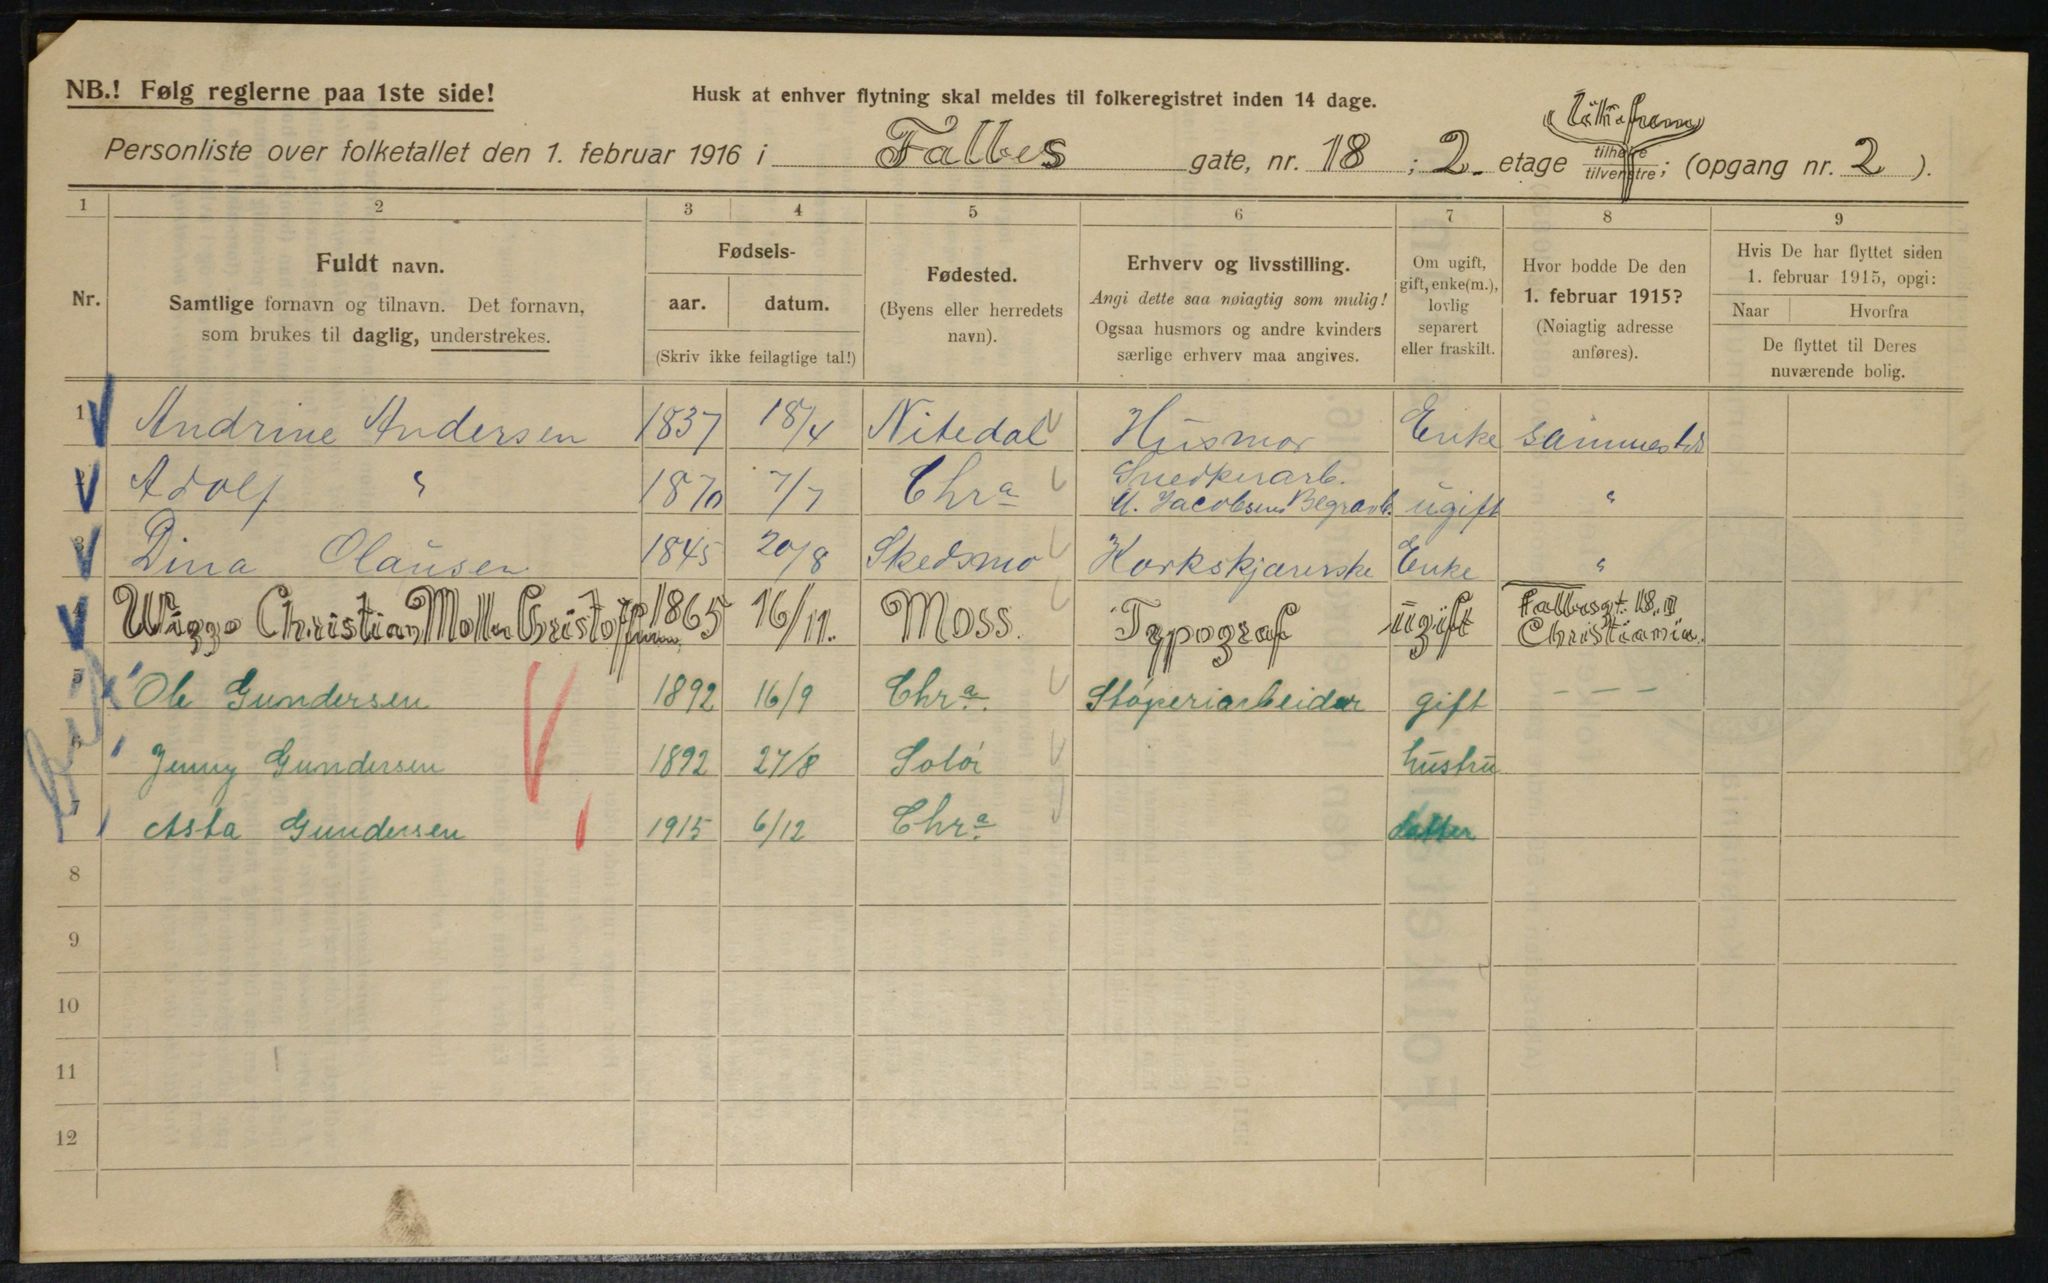 NB.! Følg reglerne paa 1ste side!
Husk at enhver flytning skal meldes til folkeregistret inden 14 dage.
Personliste over folketallet den 1. februar 1916 i Falbes gate, nr. 18 ; 2. etage tilhøire tilvenstre; (opgang nr. 2 ).
1 2 3 4 5 6 7 8 9
Nr.
Fuldt navn.
Samtlige fornavn og tilnavn. Det fornavn,
som brukes til daglig, understrekes.
Fødsels-
aar. datum.
(Skriv ikke feilagtige tal!)
Fødested.
(Byens eller herredets
navn).
Erhverv og livsstilling.
Angi dette saa nøiagtig som mulig!
Ogsaa husmors og andre kvinders
særlige erhverv maa angives.
Om ugift,
gift, enke(m.),
lovlig
separert
eller fraskilt.
Hvor bodde De den
1. februar 1915?
(Nøiagtig adresse
anføres).
Hvis De har flyttet siden
1. februar 1915, opgi:
Naar Hvorfra
De flyttet til Deres
nuværende bolig.
1 Andrine Andersen 1837 18/4 Nitedal Husmor Enke sammested
2 Adolf " 1870 7/7 Chra Snedkerarb.
M. Jacobsens Begravb. ugift "
3 Dina Olausen 1845 20/8 Skedsmo Korkskjærerske Enke "
4 Wiggo Christian Moller Christoffersen 1865 16/11. Moss. Typograf ugift Falbesgt. 18. II
Christiania.
5 Ole Gundersen 1892 16/9 Chra. Støperiarbeider gift - - -
6 Jenny Gundersen 1892 27/8 Solør hustru
7 Asta Gundersen 1915 6/12 Chra. datter
8
9
10
11
12